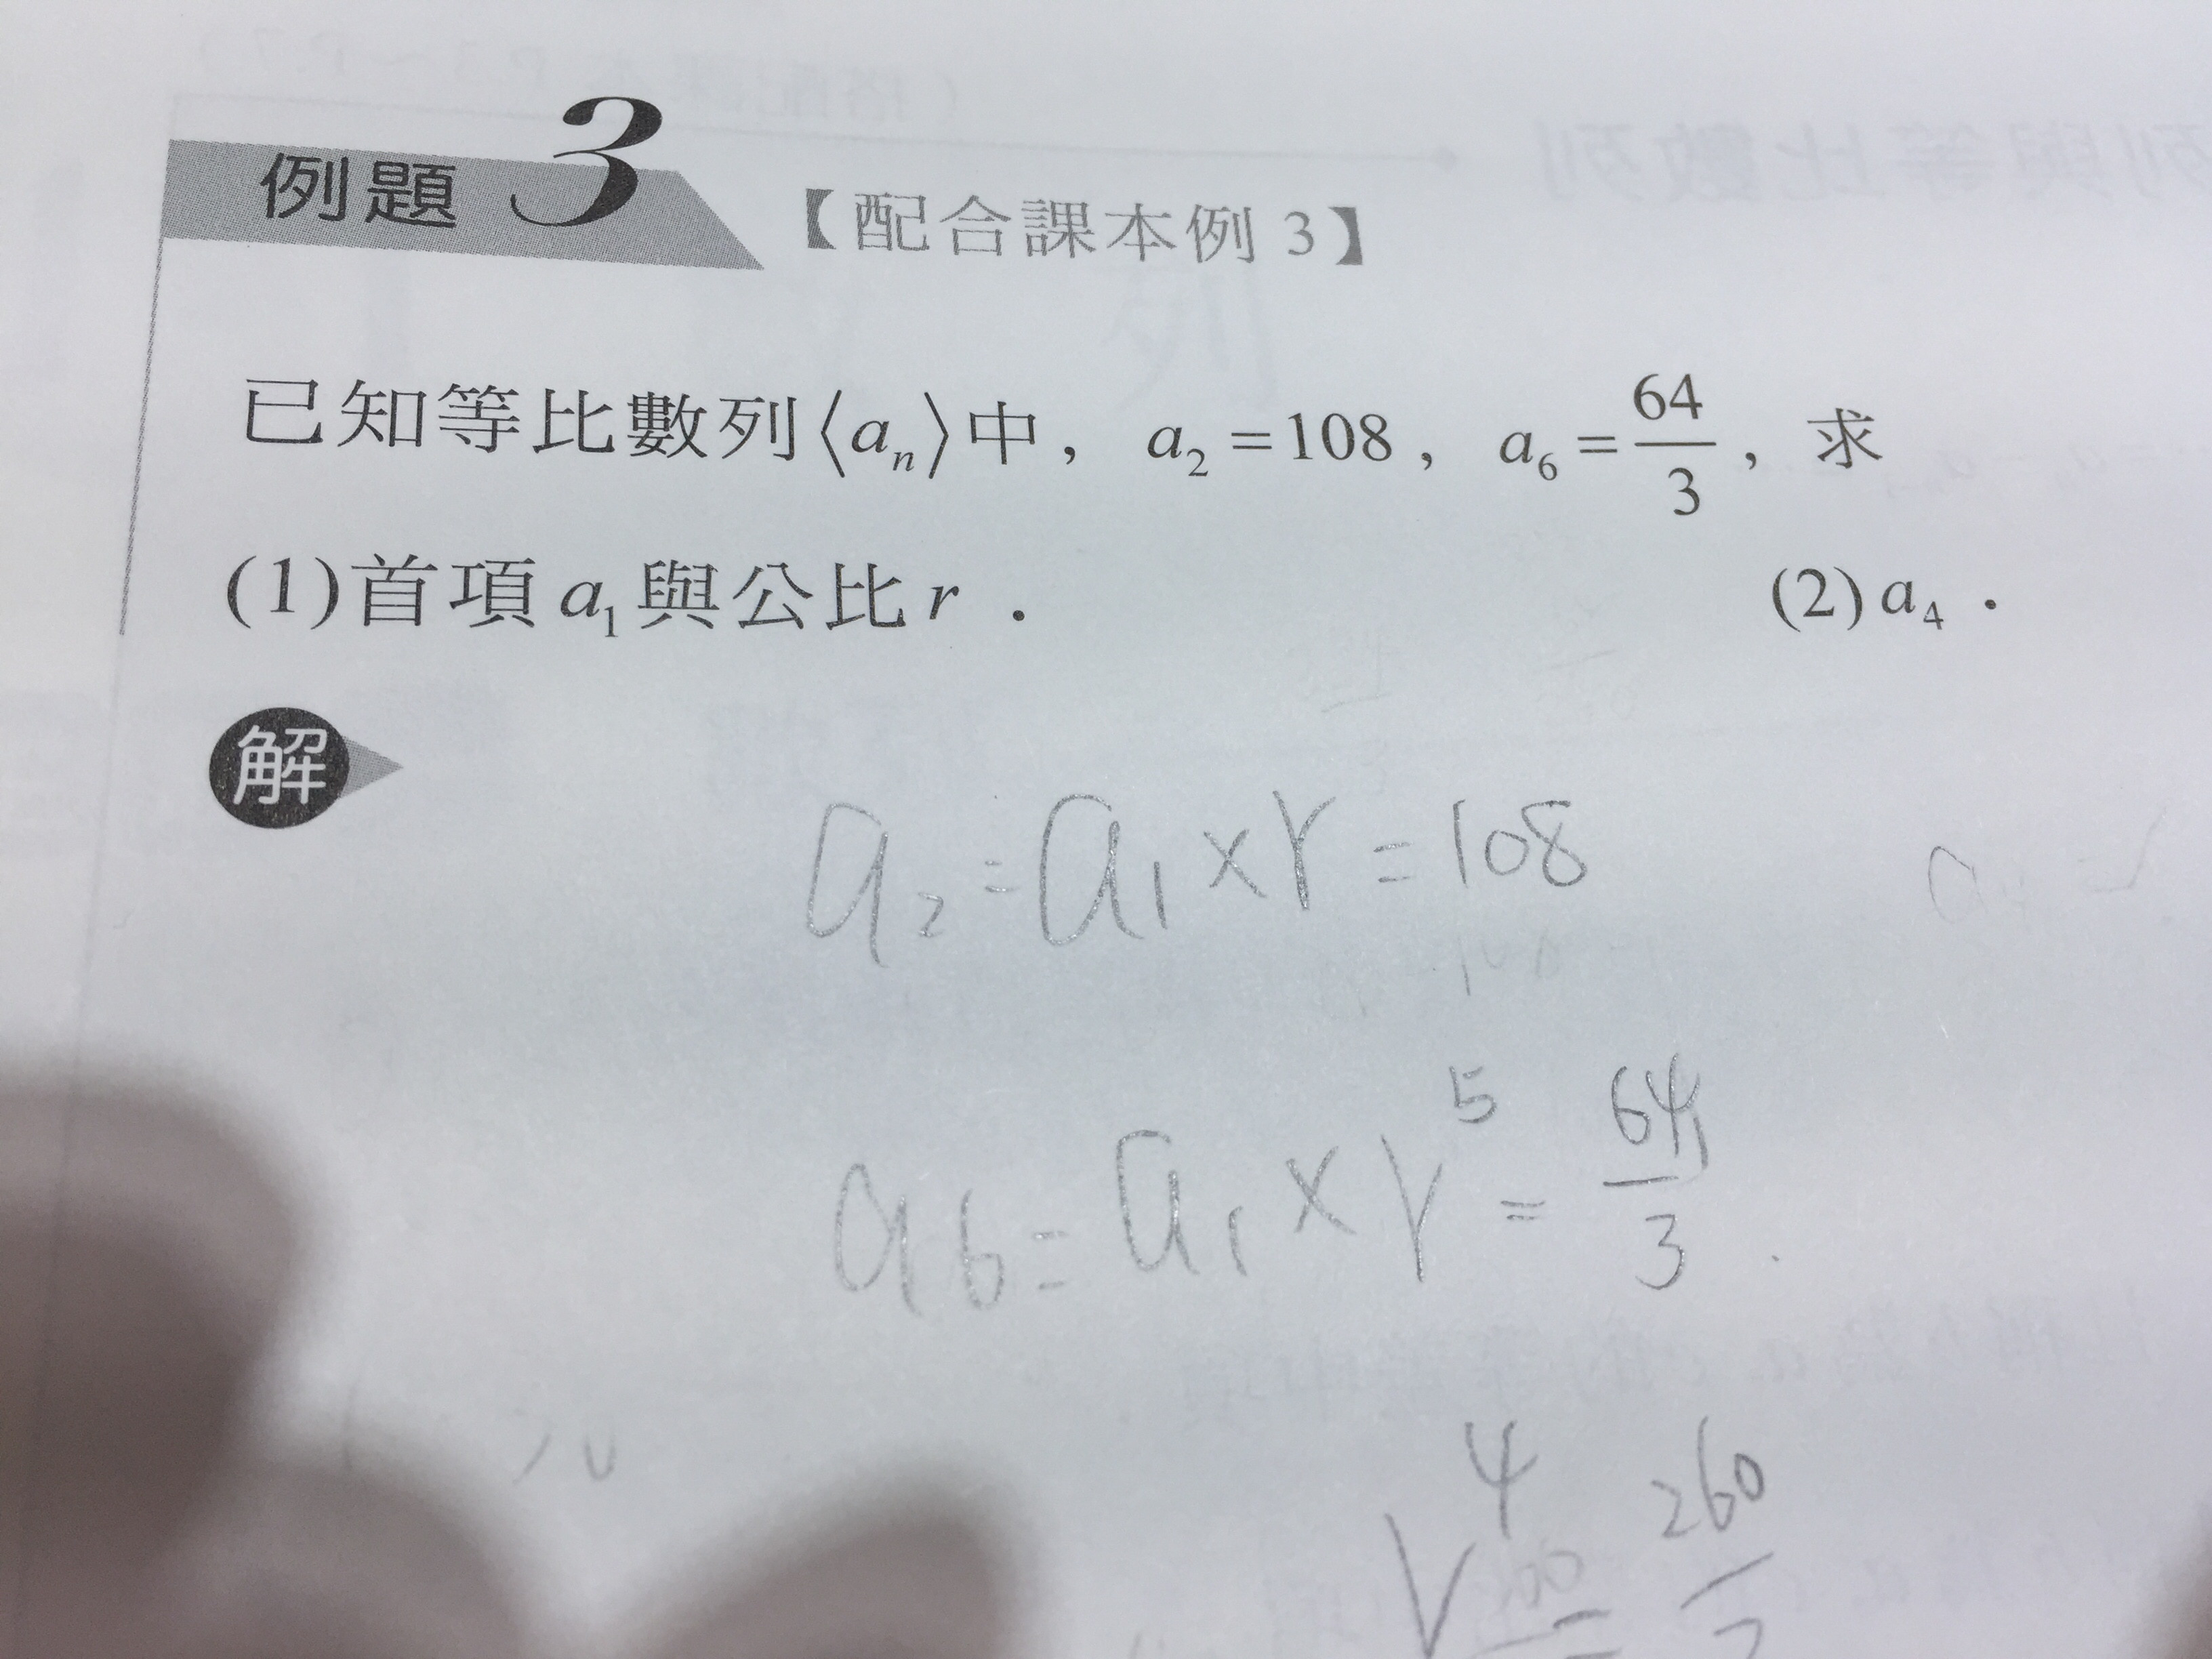 例題 3 【配合課本例 3】
已知等比數列⟨aₙ⟩中，a₂ = 108，a₆ = 64/3，求
(1)首項 a₁ 與公比 r． (2) a₄．
解
a₂ = a₁ × r = 108
a₆ = a₁ × r⁵ = 64/3
r⁴ = 260